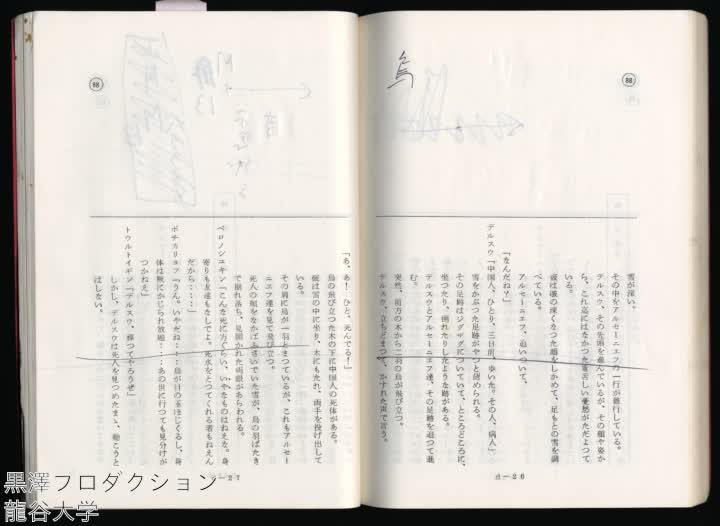 88
烏
雪が深い。
その中をアルセーニエフの一行が旅行している。
デルスウ、その先頭を進んでいるが、その顔や姿か
ら、これ迄にはなかつた重苦しい憂愁がただよつて
いる。
彼は皺の深くなつた顔をしかめて、足もとの雪を調
べている。
アルセーニエフ、追いついて、
「なんだね？」
デルスウ「中国人、ひとり、三日前、歩いた。その人、病人」
雪をかぶつた足跡がやつと認められる。
その足跡はジグザグについていて、ところどころに、
坐つたり、倒れたりしたような跡がある。
デルスウとアルセーニエフ達、その足跡を追つて進
む。
突然、前方の木から二羽の烏が飛び立つ。
デルスウ、立ちどまつて、かすれた声で言う。
d－26
88
「あ、あ！　ひと、死んでる！」
烏の飛び立つた木の下に中国人の死体がある。
彼は雪の中に坐り、木にもたれ、両手を投げ出して
いる。
その肩に烏が一羽とまつているが、これもアルセー
ニエフ達を見て飛び立つ。
死人の顔をなかばふさいでいた雪が、烏の羽ばたき
で崩れ落ち、見開かれた両眼があらわれる。
ベロノシユキン「こんな死に方ぐらい、いやなものはねえな。身
寄りも友達もなしでよ。死水をとつてくれる者もねえん
だから……」
ボチカリヨフ「うん。いやだね……烏が目の玉ほじくるし、身
体は獣にかじられ放題……あの世に行つても見分けが
つかねえ」
トウルトイギン「デルスウ、葬つてやろうぜ」
しかし、デルスウは死人を見つめたまま、動こうと
はしない。
27
黒澤プロダクション
龍谷大学